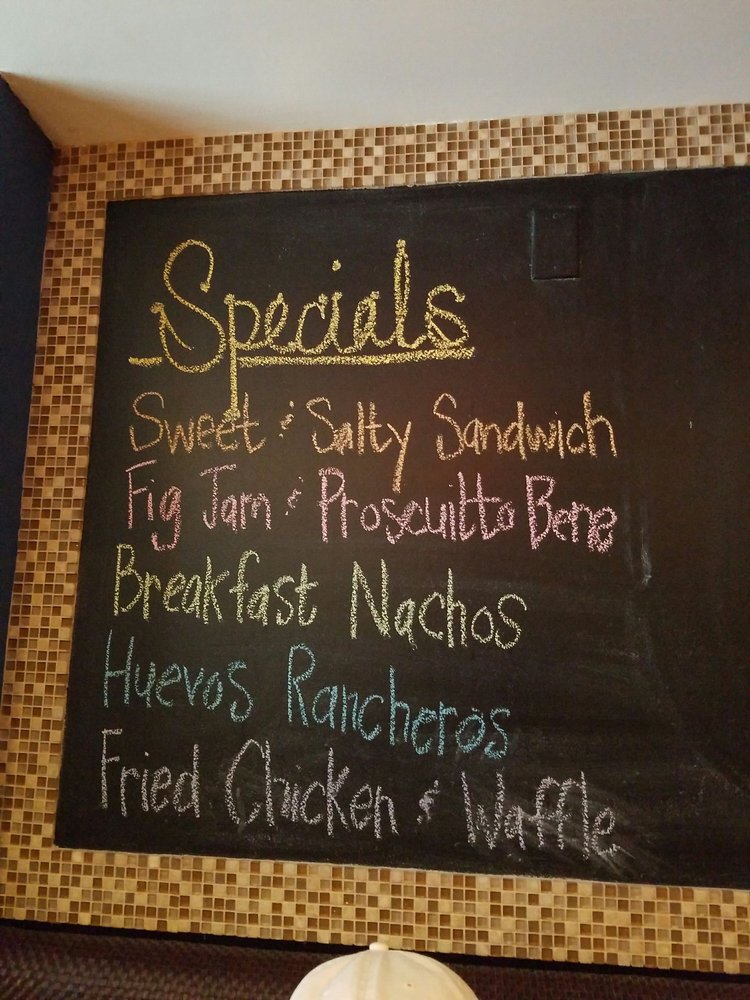 Specials
Sweet & Salty Sandwich
Fig Jam & Proscuitto Bene
Breakfast Nachos
Huevos Rancheros
Fried Chicken & Waffle